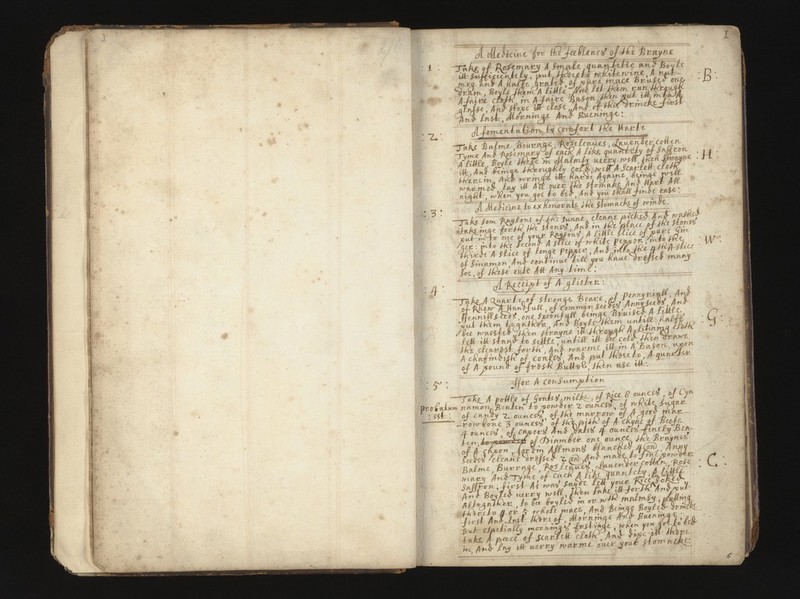 3
1
A Medicine for the feeblenes of the Brayne
:1: Take of Rosemary A smale quantetie and Boyle :B:
itt sufficientely, put thereto whitewine, A nut
meg and A halfe grated of pure mace Brused one
dram, Boyle them A little And let them run through
A faire cloth in A faire Bason then put itt into A
glasse, And stope itt close And of this drincke first
And last, Morninge And Eueninge:
A fomentation to comfort the Harte
:2: Take Balme, Bourage, Rose leaues, Lauender cotten :H:
Tyme And Rosemary of each A like quantety of Saffron
A little, Boyle these in Malmsy uerry well then strayne
itt, And beinge throughly cold, wett A Scarlett cloth
therein, And wringe itt hard: Againe, beinge well
warmed lay itt All ouer the stomake And Hart All
night, when you goe to bed And you shall finde ease:
A Medicine to exhonorate the stomacks of winde.
:3: Take som Raysons of the sunne, cleane picked And washed
takeinge forth the stones, And in the place of the stones
put in to one of your Raysons A little slice of pure Gin
ger: into the second A slice of white Pepper, into the :W:
thirde A slice of longe Pepper, And into the 4th A slice
of Sinamon And continue till you haue dressed many
soe, of these eate Att Any time:
A Receipt of A glister:
4 Take A Quarte of stronge Beare, of Pennyriall, And
of Rhew A Handfull, of common seedes Annyseeds, And :G:
Fennill seeds, one spoonfull beinge Brused A little
put them togather, And Boyle them untill halfe
bee waisted, then strayne itt through A listning cloth
lett itt stand to settle, untill itt bee cold, then drawe
the clearest forth, And warme itt in A Bason, upon
A chafindish of coales, And put thereto, A quarter
of A pound of fresh Butter, then use itt:
:5: ffor A Consumption
Take A pottle of Goates milke, of Rice 8 ounces, of Cyn
Probatum namon Beaten to powder 2 ounces, of white sugar
:est: of candy 2 ounces, of the marrow of A good mar
rowbone 3 ounces, of the pith of A Chyne of Beefe
4 ounces, of Capers And Dates 4 ounces finely Bea
ten, of Diamber one ounce, the Braynes
of A Capon, Jordin Allmons blanched 4 oun, Anny
seeds cleane dressed 2 oun And made to fine powder :C:
Balme, Burrage, Rosleaues, Lauender cotten, Rose
mary And Tyme of each A like quantety, A little
Saffron, first As was sayde lett your Rice soked
And Boyled uerry well, then take itt forth And put
Altogather, to bee boyled in or with malmsy, putting
thereto 4 or 5 whole mace, And Beinge Boyled drincke
first And last therof, Morninge And Eueninge
But espetially mornings fastinge, when you goe to bed
take A peece of Scarlett cloth, And dipe itt there
in, And lay itt uerry warme ouer your stomacke:
6